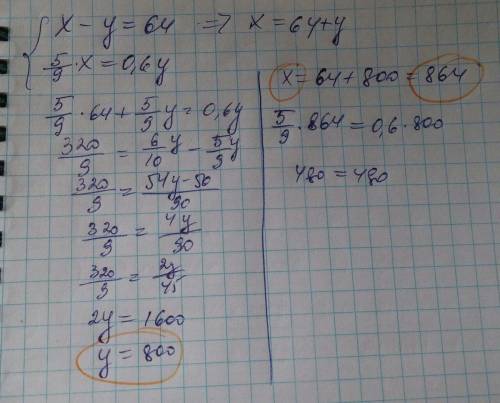 x - y = 64 => x = 64+y
5/9 · x = 0,6y
5/9 · 64 + 5/9 y = 0,6y
320/9 = 6/10 y - 5/9 y
320/9 = 54y-50/90
320/9 = 4y/90
320/9 = 2y/45
2y = 1600
y = 800
x = 64 + 800 = 864
5/9 · 864 = 0,6 · 800
480 = 480